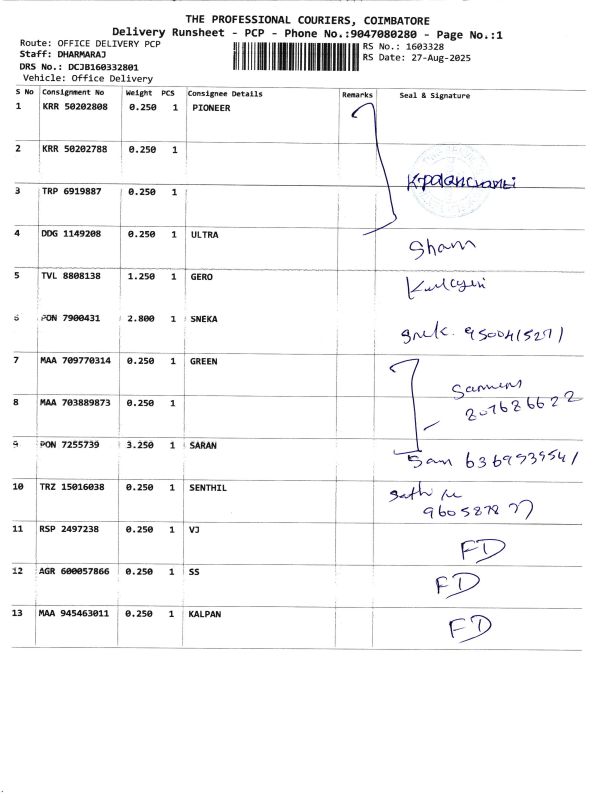 THE PROFESSIONAL COURIERS, COIMBATORE
Delivery Runsheet - PCP - Phone No.:9047080280 - Page No.:1
Route: OFFICE DELIVERY PCP
RS No.: 1603328
Staff: DHARMARAJ
RS Date: 27-Aug-2025
DRS No.: DCJB160332801
Vehicle: Office Delivery
S No Consignment No Weight PCS Consignee Details Remarks Seal & Signature
1 KRR 50202808 0.250 1 PIONEER
2 KRR 50202788 0.250 1
3 TRP 6919887 0.250 1
4 DDG 1149208 0.250 1 ULTRA Sham
5 TVL 8808138 1.250 1 GERO
6 PON 7900431 2.800 1 SNEKA 9500415271
7 MAA 709770314 0.250 1 GREEN
8 MAA 703889873 0.250 1
9 PON 7255739 3.250 1 SARAN San 6369939541
10 TRZ 15016038 0.250 1 SENTHIL
11 RSP 2497238 0.250 1 VJ FD
12 AGR 600057866 0.250 1 SS FD
13 MAA 945463011 0.250 1 KALPAN FD